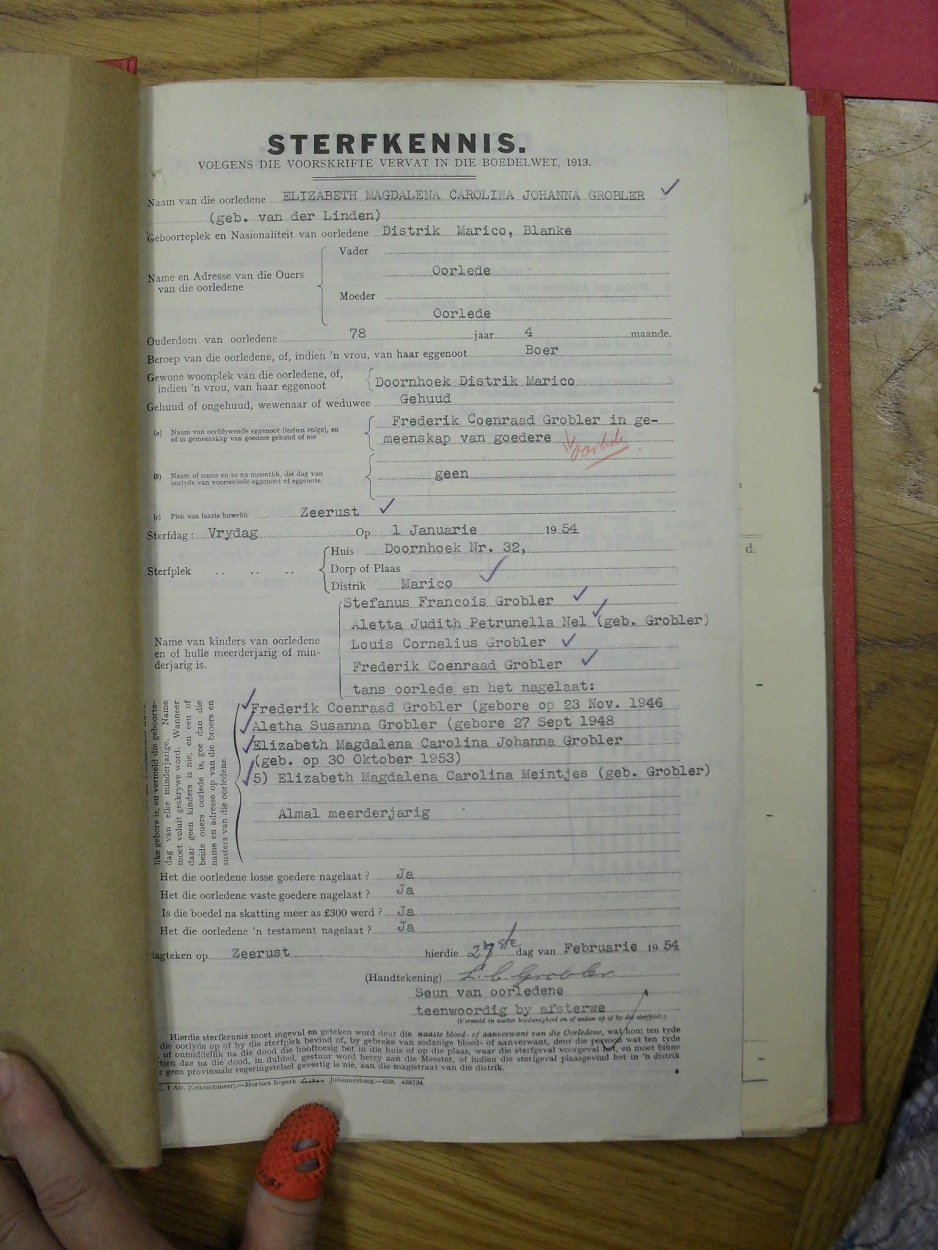 STERFKENNIS.
VOLGENS DIE VOORSKRIFTE VERVAT IN DIE BOEDELWET, 1913.
Naam van die oorledene ELIZABETH MAGDALENA CAROLINA JOHANNA GROBLER
(geb. van der Linden)
Geboorteplek en Nasionaliteit van oorledene Distrik Marico, Blanke
Vader
Name en Adresse van die Ouers van die oorledene
Oorlede
Moeder
Oorlede
Ouderdom van oorledene 78 jaar 4 maande.
Beroep van die oorledene, of, indien 'n vrou, van haar eggenoot Boer
Gewone woonplek van die oorledene, of,
indien 'n vrou, van haar eggenoot Doornhoek Distrik Marico
Gehuud of ongehuud, wewenaar of weduwee Gehuud
(a) Naam van oorblywende eggenoot (indien enige), en
of in gemeenskap van goedere gehuud of nie
Frederik Coenraad Grobler in ge-
meenskap van goedere oorlede
(b) Naam of name en so na moontlik, die dag van
oorlyde van vooroorlede eggenoot of eggenote
geen
(c) Plek van laaste huwelik Zeerust
Sterfdag: Vrydag Op 1 Januarie 1954
Huis Doornhoek Nr. 32,
Sterfplek .. .. .. Dorp of Plaas
Distrik Marico
Stefanus Francois Grobler
Aletta Judith Petrunella Nel (geb. Grobler)
Name van kinders van oorledene
en of hulle meerderjarig of min-
derjarig is.
Louis Cornelius Grobler
Frederik Coenraad Grobler
tans oorlede en het nagelaat:
like gebore is, en vermeld die geboorte-
dag van elke minderjarige. Name
moet voluit geskrywe word. Wanneer
daar geen kinders is nie, en een of
beide ouers oorlede is, gee dan die
name en adresse op van die broers en
susters van die oorledene.
Frederik Coenraad Grobler (gebore op 23 Nov. 1946
Aletha Susanna Grobler (gebore 27 Sept 1948
Elizabeth Magdalena Carolina Johanna Grobler
(geb. op 30 Oktober 1953)
5) Elizabeth Magdalena Carolina Meintjes (geb. Grobler)
Almal meerderjarig
Het die oorledene losse goedere nagelaat? Ja
Het die oorledene vaste goedere nagelaat? Ja
Is die boedel na skatting meer as £300 werd? Ja
Het die oorledene 'n testament nagelaat? Ja
agteken op Zeerust hierdie 27ste dag van Februarie 1954
(Handtekening) L. C. Grobler
Seun van oorledene
teenwoordig by afsterwe
(Vermeld in watter hoedanigheid en of aldan op of by die sterfplek.)
Hierdie sterfkennis moet ingevul en geteken word deur die naaste bloed- of aanverwant van die Oorledene, wat hom ten tyde
die oorlyde op of by die sterfplek bevind of, by gebreke van sodanige bloed- of aanverwant, deur die persoon wat ten tyde
of onmiddellik na die dood die hooftoesig het in die huis of op die plaas, waar die sterfgeval voorgeval het, en moet binne
tien dae na die dood, in dubbel, gestuur word hetsy aan die Meester, of indien die sterfgeval plaasgevind het in 'n distrik
geen provinsiale regeringstelsel gevestig is nie, aan die magistraat van die distrik.
1 Afr. (Gekombineer).—Hortors Beperk Johannesburg.—628. 459794
d.